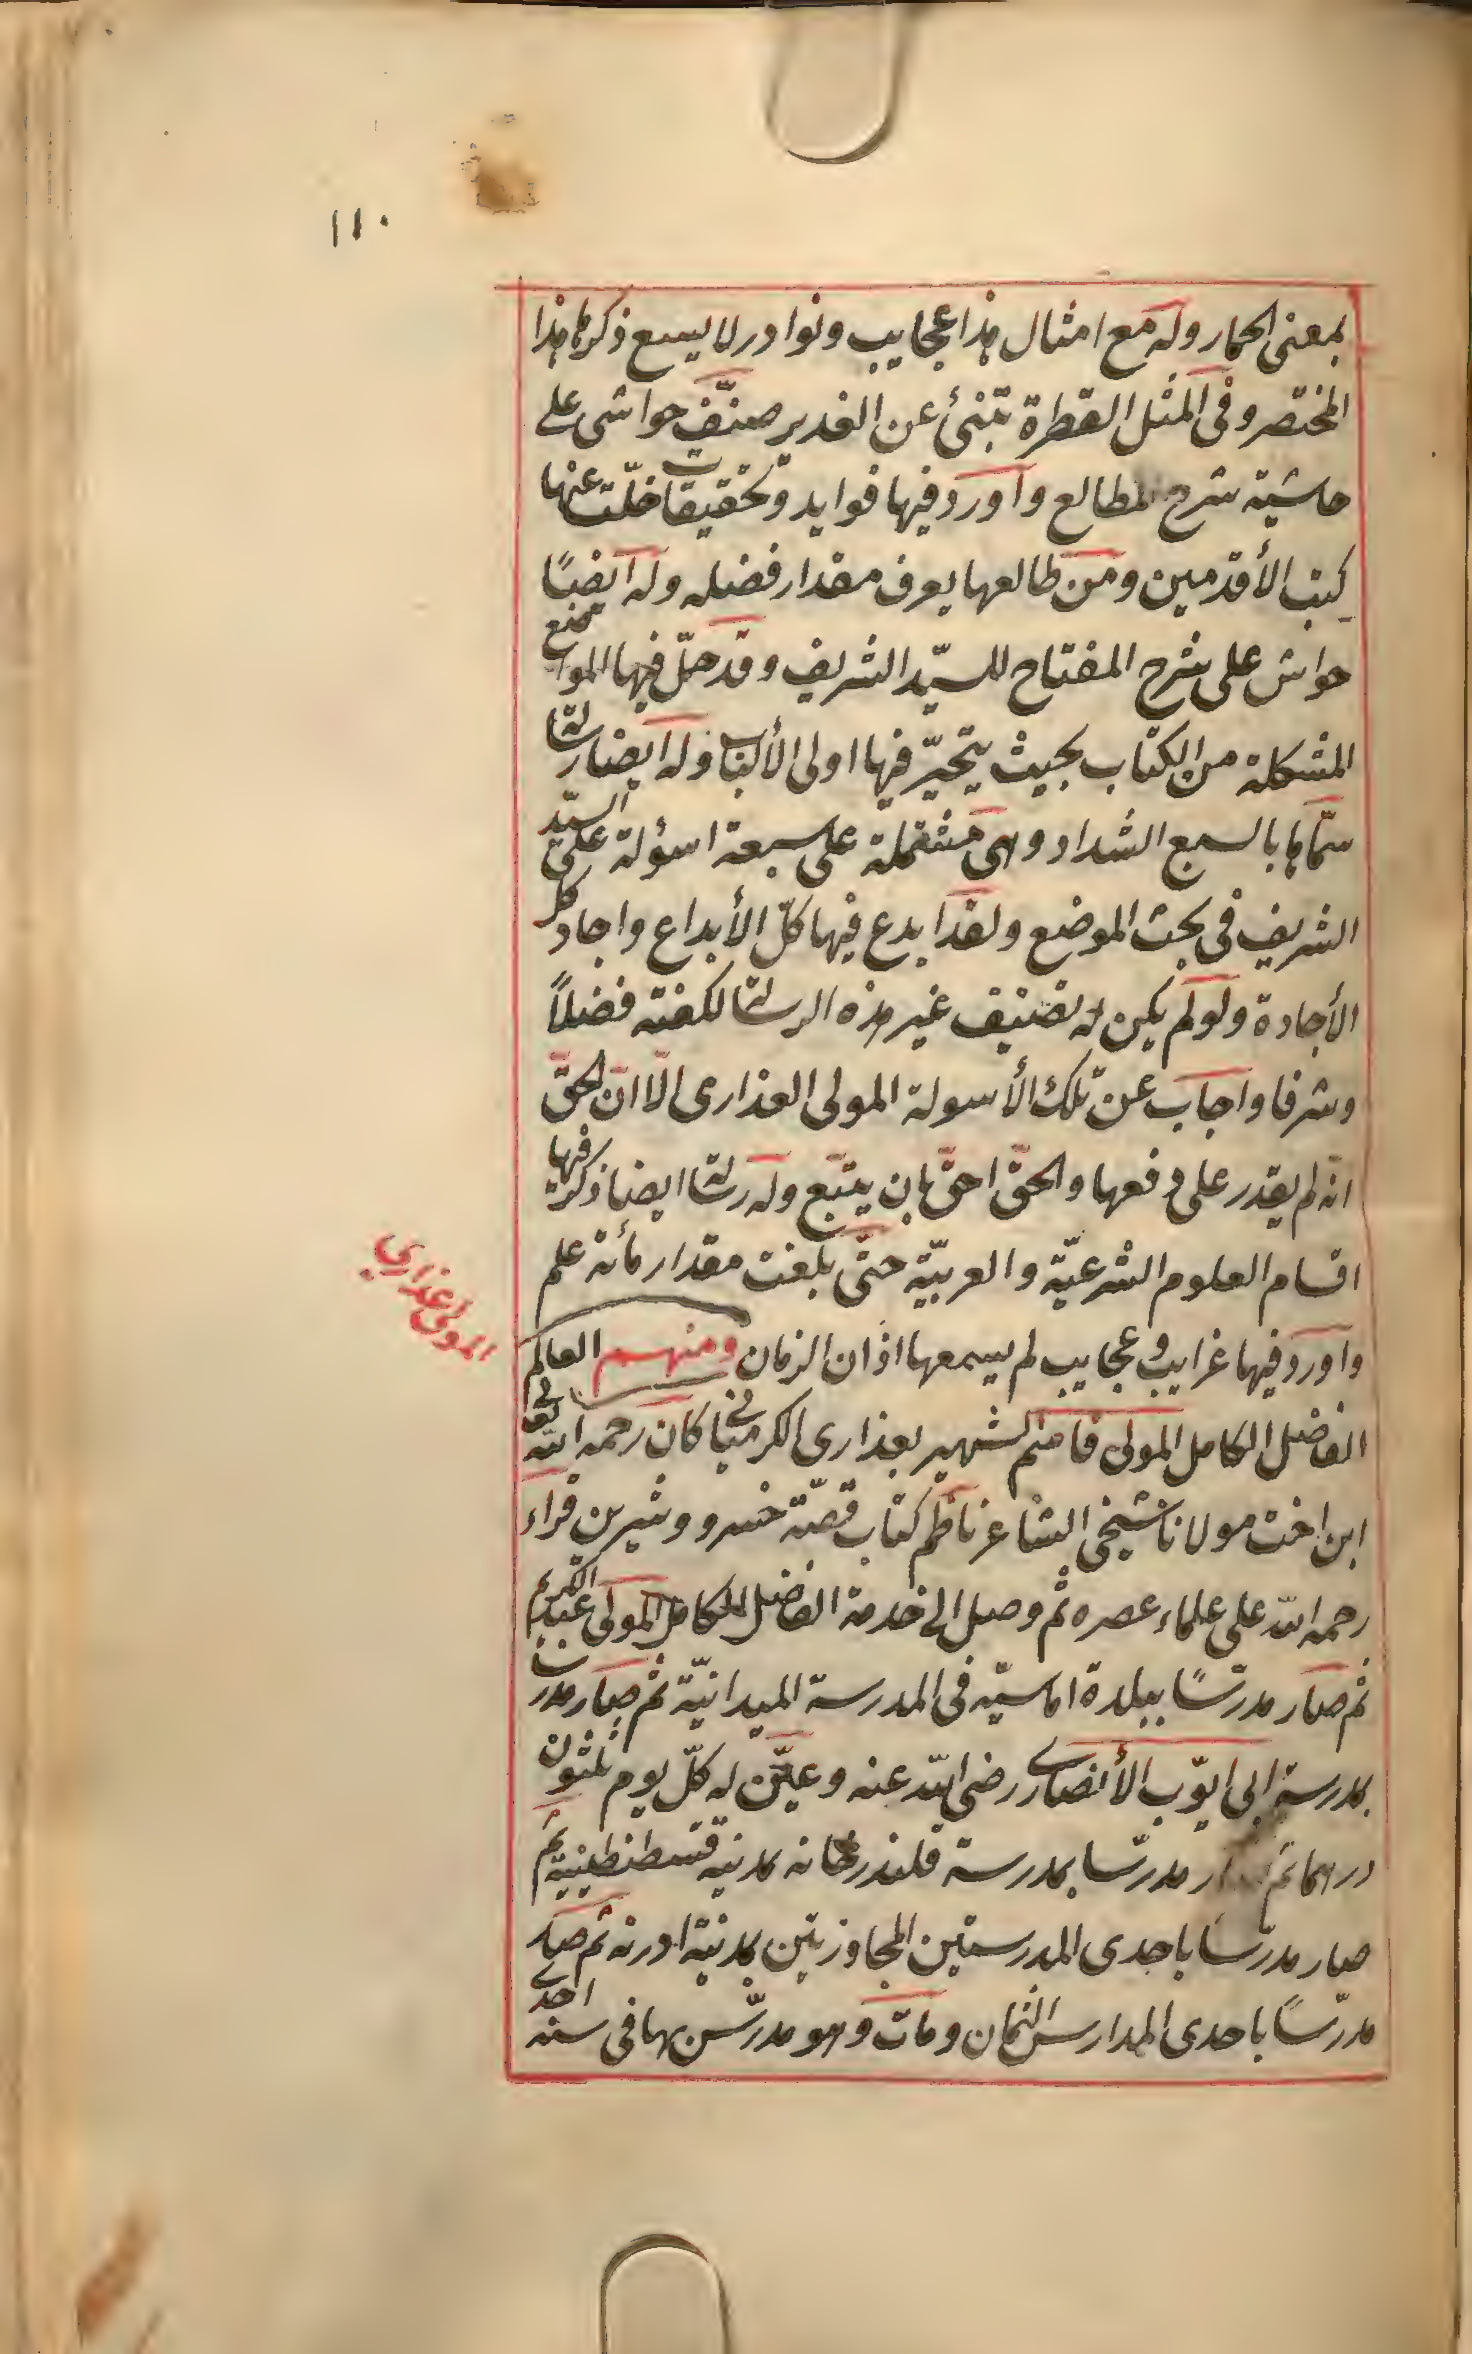 ١١٠
بمعنى الحمار وله مع امثال هذا عجايب ونوادر لا يسع ذكرها هذا
المختصر وفى المثل القطرة تنبئ عن الغدير صنّف حواشى على
حاشية شرح المطالع واورد فيها فوايد وتحقيقات خلت عنها
كتب الأقدمين ومن طالعها يعرف مقدار فضله وله ايضًا
حواش على شرح المفتاح للسيّد الشريف وقد حلّ فيها المواضع
المشكلة من الكتاب بحيث يتحيّر فيها اولى الألباب وله ايضا رسالة
سمّاها بالسبع الشداد وهى مشتملة على سبعة اسؤلة على السيّد
الشريف فى بحث الموضع ولقد ابدع فيها كلّ الأبداع واجاد كل
الأجادة ولو لم يكن له تصنيف غير هذه الرسالة لكفته فضلاً
وشرفا واجاب عن تلك الأسولة المولى العذارى الّا انّ الحقّ
انّه لم يقدر على دفعها والحقّ احقّ بان يتبع وله رسالة ايضا ذكر فيها
اقسام العلوم الشرعيّة والعربيّة حتّى بلغت مقدار مأئة علم
واورد فيها غرايب وعجايب لم يسمعها اذان الزمان ومنهم العالم
المولى عذاري
الفاضل الكامل المولى قاسم الشهير بعذارى الكرميانى كان رحمه الله تعا
ابن اخت مولانا شيخى الشاعر ناظم كتاب قصّة خسرو وشيرين قراء
رحمه الله على علماء عصره ثم وصل الى خدمة الفاضل الكامل المولى عبد الكريم
ثم صار مدرّسًا ببلدة اماسيّه فى المدرسة الميدانيّة ثم صار مدرسا
بمدرسة ابى ايّوب الأنصارى رضى الله عنه وعيّن له كلّ يوم ثلثون
درهما ثم صار مدرّسا بمدرسة قلندرخانه بمدنية قسطنطينية ثم
صار مدرّسا باحدى المدرستين المجاوزتين بمدنية ادرنه ثم صار
مدرّسًا باحدى المدارس الثمان ومات وهو مدرّس بها فى سنه احدى